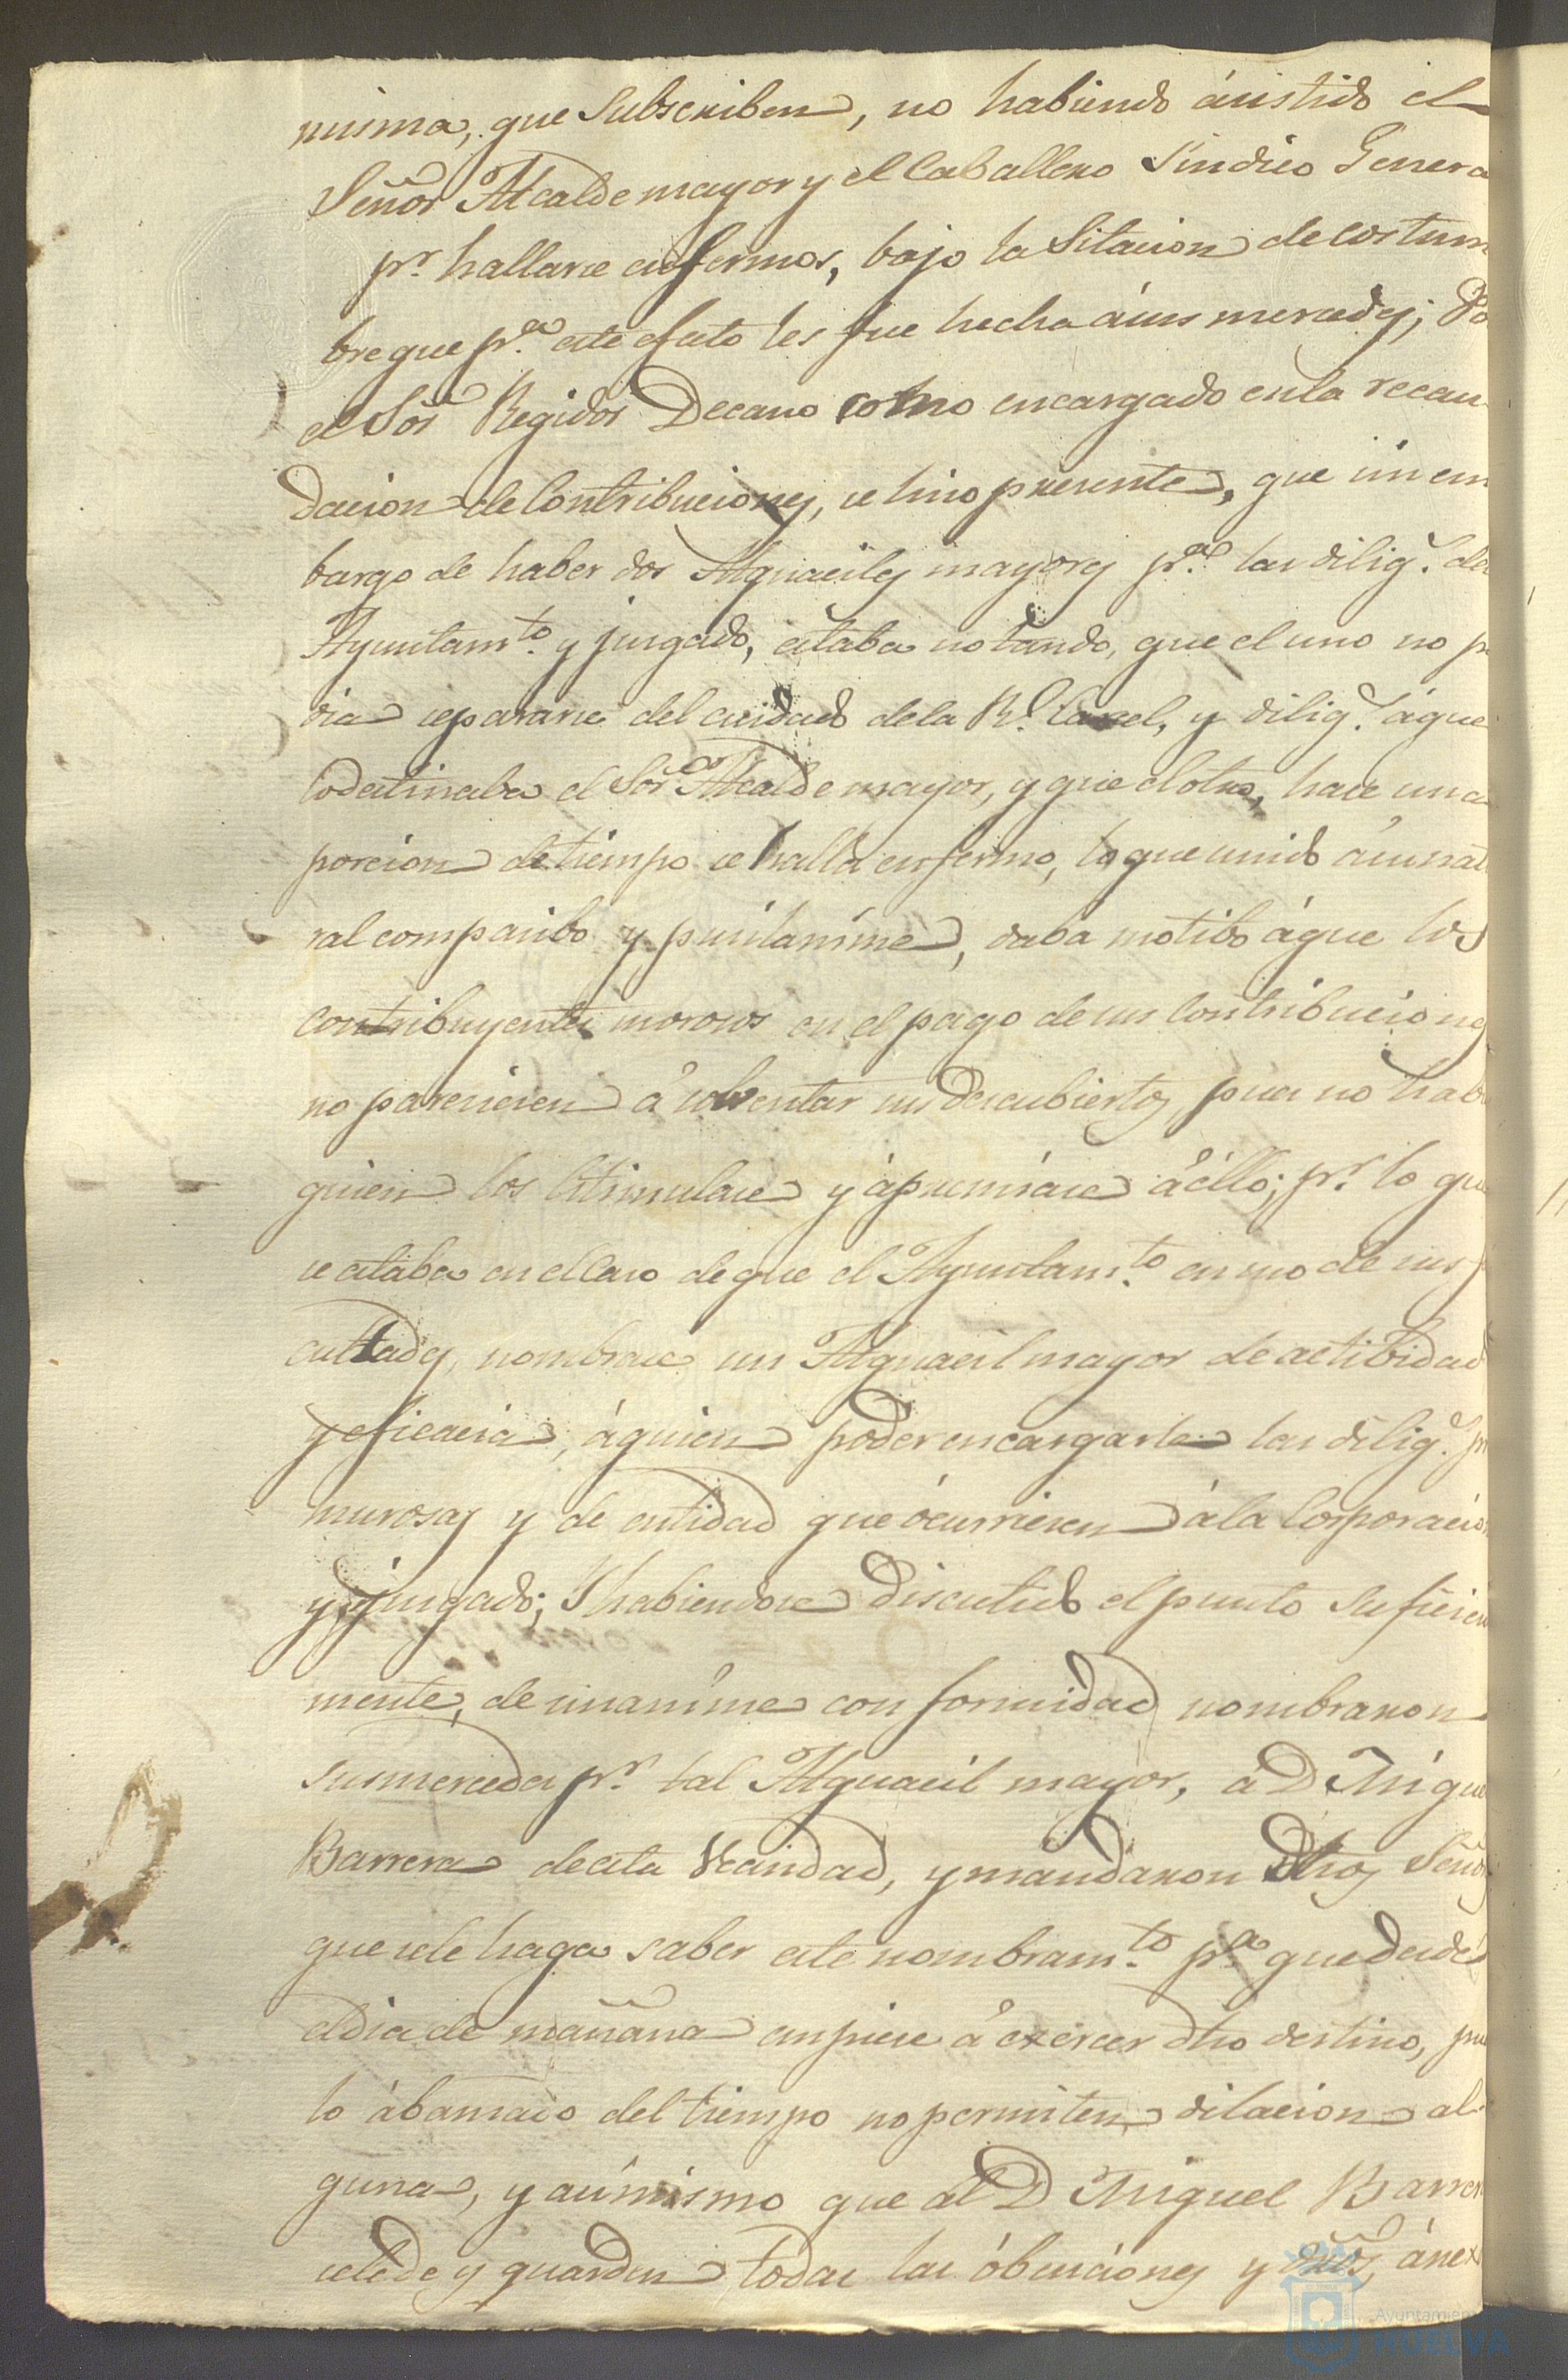 misma, que Subscriben, no habiendo ásistido el
Señor Alcalde mayor y el Caballero Sindico Genera
pr. hallarse enfermos, bajo la Sitacion de costum
bre que pa. este efecto les fue hecha á sus mercedes; Po
el Sor Regidor Decano como encargado en la recau
dacion de Contribuciones, se hiso presente, que sin em
bargo de haber dos Alguaciles mayores pa. las dilig.s del
Ayuntamto. y jusgado, estaba notando, que el uno no p
dia separarse del cuidado de la Rl. Carcel, y dilig.s á que
lo destinaba el Sor Alcalde mayor, y que el otro, hace una
porcion de tiempo se halla enfermo, lo que unido á su natu
ral compasibo y pusilanime, daba motibo á que los
contribuyentes morosos en el pago de sus Contribuciones
no pareciesen á solventar sus descubiertos, pues no habi
quien los Estimulase y ápremiase á éllo; pr. lo que
se estaba en el Caso de que el Ayuntamto. en uso de sus f
cultades, nombrase un Alguacil mayor de actibidad
y eficacia, á quien poder encargarle las dilig.s pr
murosas y de entidad que ócurriesen á la Corporacion
y jusgado; Y habiendose Discutido el punto suficien
mente, de unanime conformidad nombraron
sus mercedes pr. tal Alguacil mayor, á D Migue
Barrera de esta Vecindad, y mandaron dhos Señor
que se le haga saber este nombramto. pa. que desde
el dia de mañana empiese á exercer dho destino, pu
lo ábansado del tiempo no permiten dilacion al-
guna, y asimismo que al D Miguel Barrer
se le de y guarden todas las óbenciones y dros, ánex
Ayuntamien
HUELVA